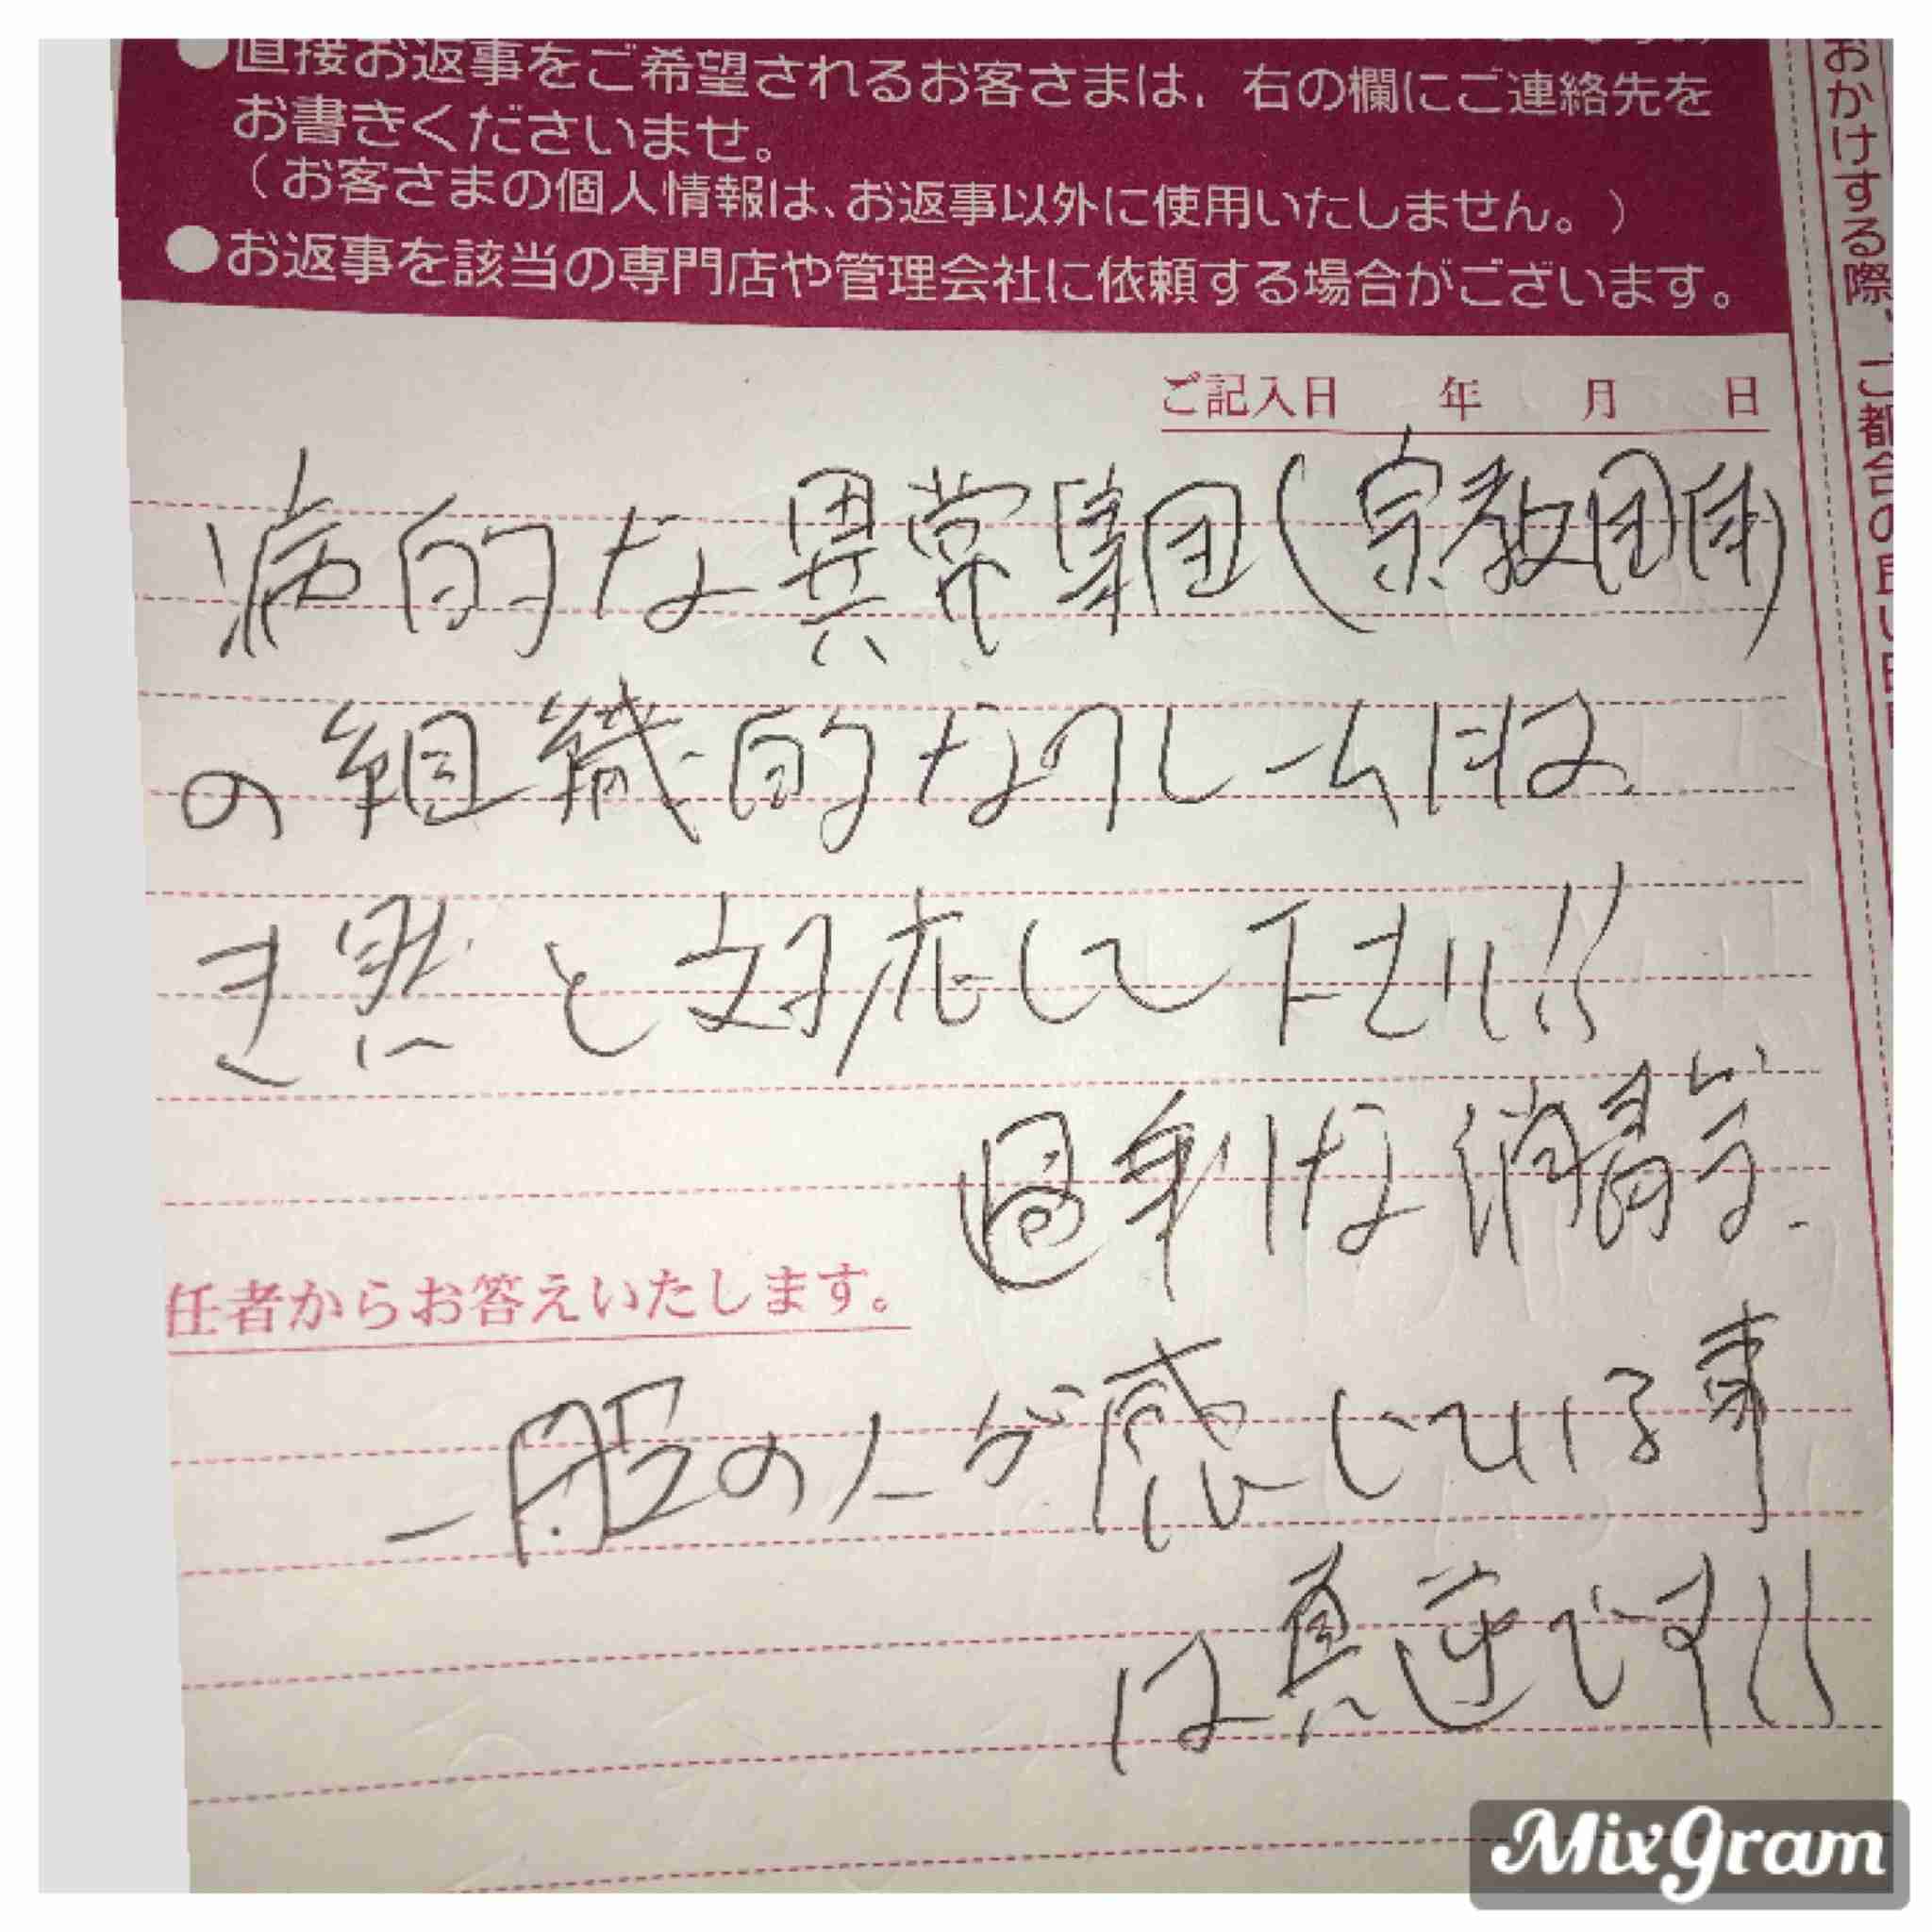 直接お返事をご希望されるお客さまは、右の欄にご連絡先を
お書きくださいませ。
（お客さまの個人情報は、お返事以外に使用いたしません。）
●お返事を該当の専門店や管理会社に依頼する場合がございます。
おかけする際、ご都合の良い
ご記入日 年 月 日
病的な異常集団(宗教団体)
の組織的なクレームには
き然と対応して下さい!!
過剰な消毒
任者からお答えいたします。
一般の人が感じている事
は真逆です!!
MixGram